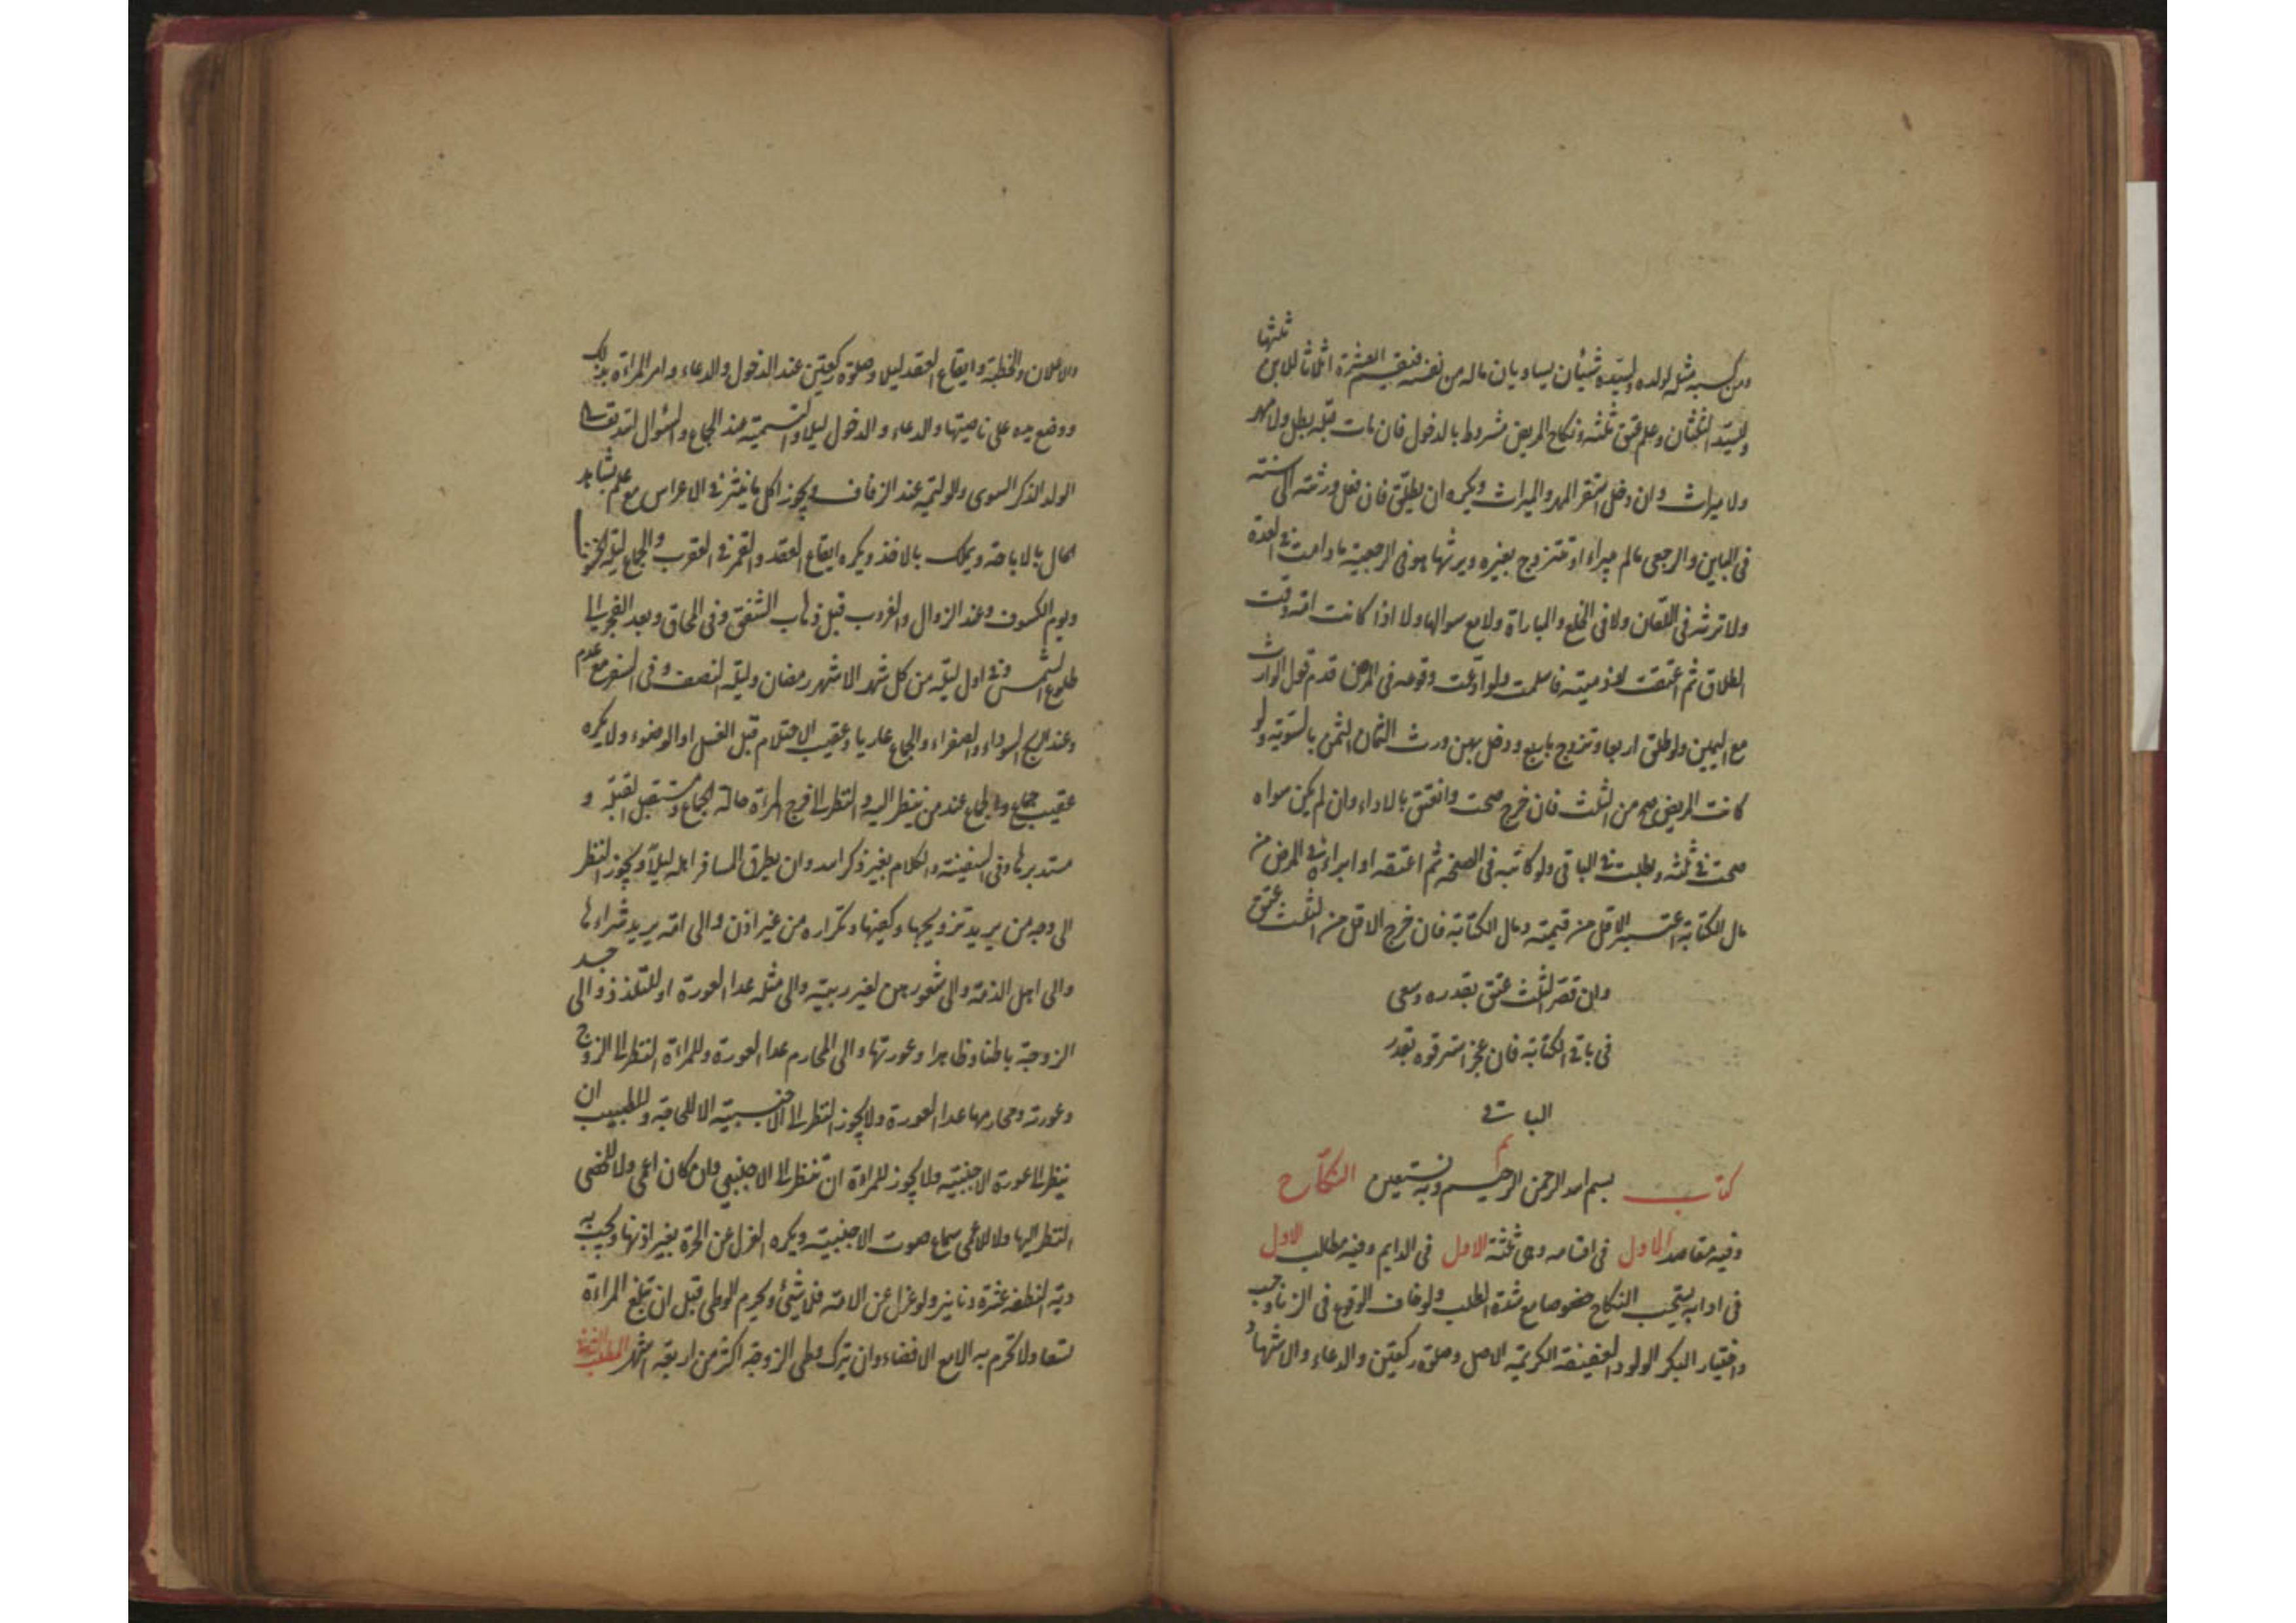 ومن كسبه مثل لولده ولسيده شيئان يساويان ماله من نفسه فتقسم العشرة اثلاثا للابن ثلثها
وللسيد الثلثان وعلم عتق ثلثه ونكاح المريض مشروط بالدخول فان مات قبله بطل ولا مهر
ولا ميراث وان دخل استقر المهر والميراث ويكره ان يطلق فان فعل ورثته الى سنته
فى الباين والرجعى مالم يبراء او تتزوج بغيره ويرثها هو فى الرجعية ما دامت فى العدة
ولا ترثه فى اللعان ولا فى الخلع والمباراة ولا مع سوالها ولا اذا كانت امة وقت
الطلاق ثم اعتقت او ذمية فاسلمت ولو ادعت وقوعه فى المرض قدم قول الوارث
مع اليمين ولو طلق اربعا وتزوج باربع ودخل بهن ورث الثمان الثمن بالسوية ولو
كاتب المريض صح من الثلث فان خرج صحت وانعتق بالاداء وان لم يكن سواه
صحت فى ثلثه وبطلت فى الباقى ولو كاتبه فى الصحة ثم اعتقه او ابراءه فى المرض من
مال الكتابة اعتبر الاقل من قيمته ومال الكتابة فان خرج الاقل من الثلث عتق
وان قصر الثلث عتق بقدره وسعى
فى باقى الكتابة فان عجز استرقوه بقدر
الباقى
كتاب بسم الله الرحمن الرحيم وبه نستعين النكاح
وفيه مقاصد الاول فى اقسامه وهى ثلثة الاول فى الدايم وفيه مطالب الاول
فى ادابه يستحب النكاح خصوصا مع شدة الطلب ولو خاف الوقوع فى الزنا وجب
واختيار البكر الولود العفيفة الكريمة الاصل وصلوة ركعتين والدعاء والاشهاد
والاعلان والخطبة وايقاع العقد ليلا وصلوة ركعتين عند الدخول والدعاء وامر المراءة بذلك
ووضع يده على ناصيتها والدعاء والدخول ليلا والتسمية عند الجماع والسؤال لله تعالى
الولد الذكر السوى والوليمة عند الزفاف ويجوز اكل ما ينثر فى الاعراس مع علم بشاهد
الحال بالاباحة ويملك بالاخذ ويكره ايقاع العقد والقمر فى العقرب والجماع ليلة الخسوف
ويوم الكسوف وعند الزوال والغروب قبل ذهاب الشفق وفى المحاق وبعد الفجر الى
طلوع الشمس وفى اول ليلة من كل شهر الا شهر رمضان وليلة النصف وفى السفر مع عدم
وعند الريح السوداء والصفراء والجماع عاريا وعقيب الاحتلام قبل الغسل او الوضوء ولا يكره
عقيب جماع والجماع عند من ينظر اليه والنظر الى فرج المرءة حالة الجماع ومستقبل القبلة و
مستدبرها وفى السفينة والكلام بغير ذكر الله وان يطرق المسافر اهله ليلا ويجوز النظر
الى وجه من يريد تزويجها وكفيها وتكراره من غير اذن والى امة يريد شراءها
والى اهل الذمة والى شعورهن لغير ريبة والى مثله عدا العورة او للتلذذ والى جسد
الزوجة باطنا وظاهرا وعورتها والى المحارم عدا العورة وللمراءة النظر الى الزوج
وعورته ومحارمها عدا العورة ولا يجوز النظر الى الاجنبية الا للحاجة وللطبيب ان
ينظر الى عورة الاجنبية ولا يجوز للمراءة ان تنظر الى الاجنبى وان كان اعمى ولا للخصى
النظر اليها ولا للاعمى سماع صوت الاجنبية ويكره العزل عن الحرة بغير اذنها ويجب به
دية النطفة عشرة دنانير ولو عزل عن الامة فلا شئ ويحرم الوطى قبل ان تبلغ المراءة
تسعا ولا تحرم به الا مع الافضاء وان يترك وطى الزوجة اكثر من اربعة اشهر المطلب الثانى